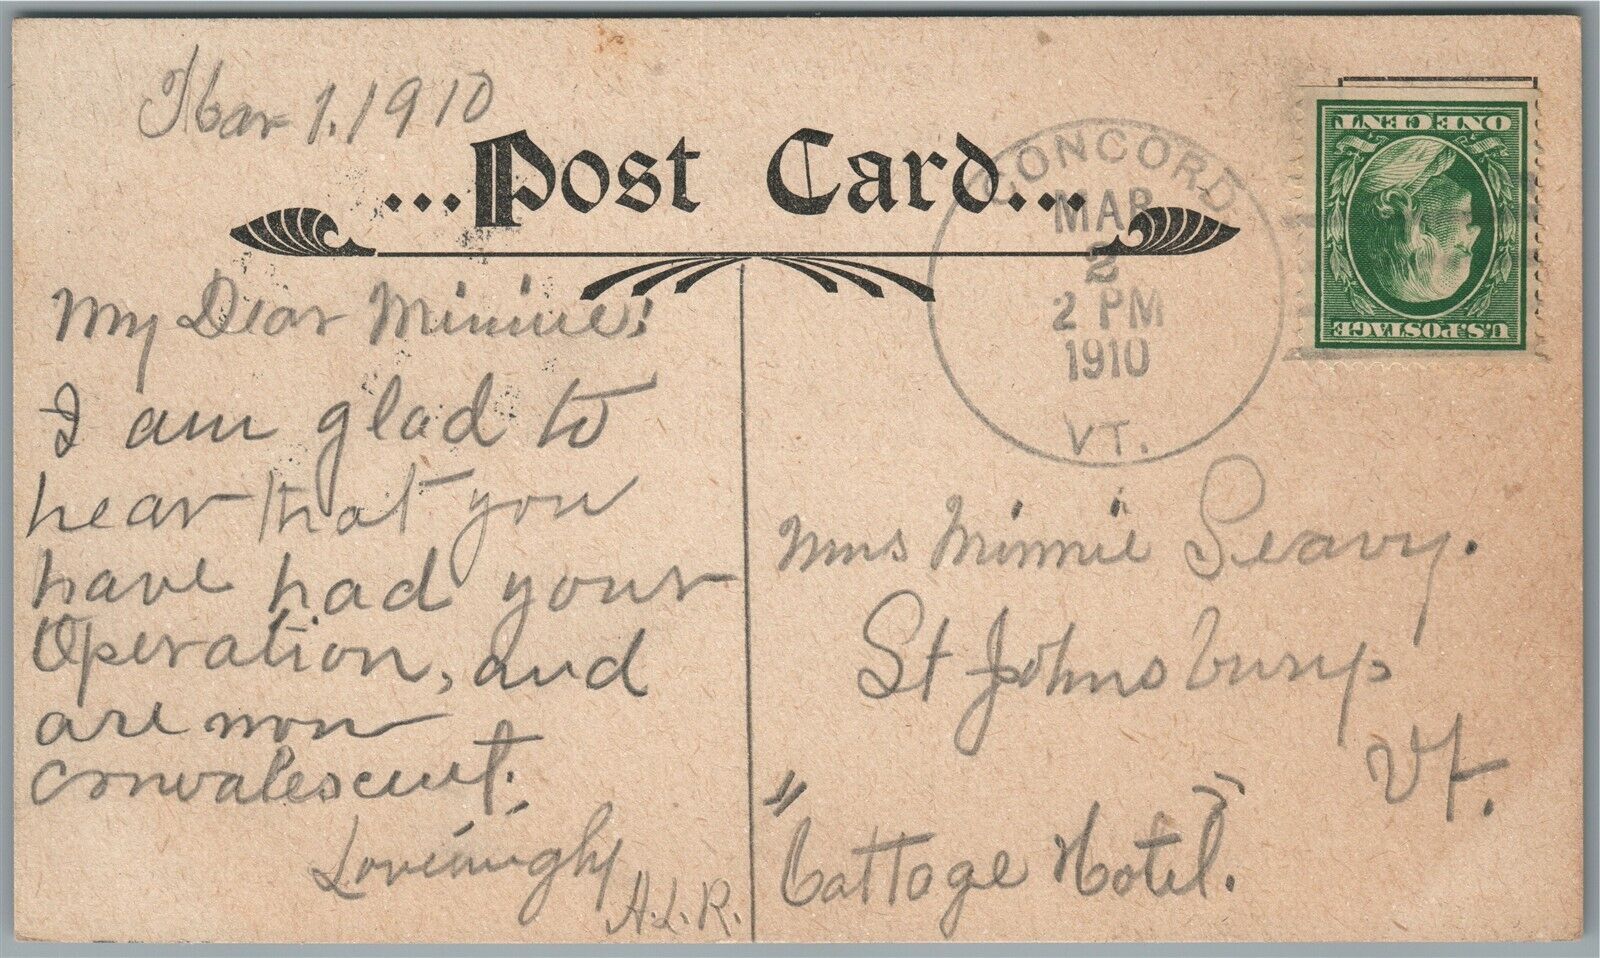 Mar 1. 1910
...Post Card...
CONCORD
MAR
2
2 PM
1910
VT.
ONE CENT
U.S. POSTAGE
My Dear Minnie!
I am glad to
hear that you
have had your
Operation, and
are now
convalescent.
A.L.R.
Mrs Minnie Seavy.
St Johnsbury
Vt.
"Cottage Hotel."